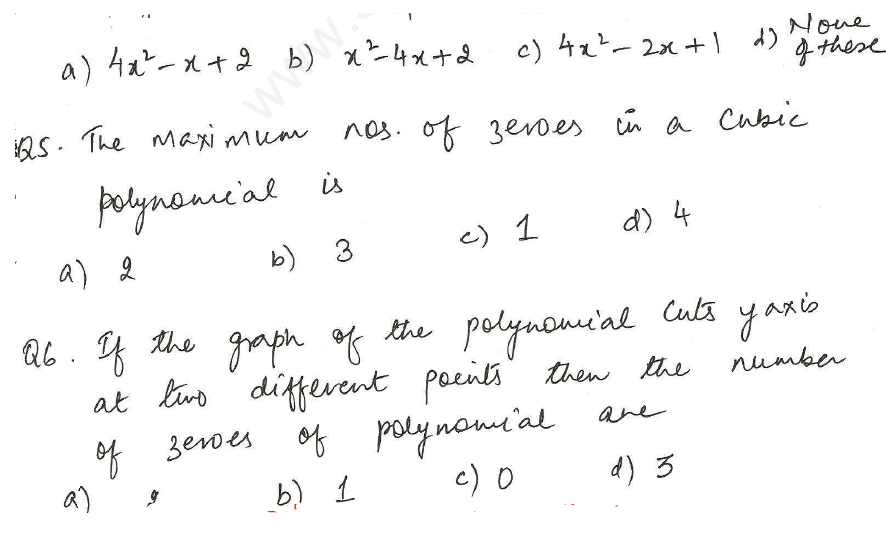 a) 4x²-x+2 b) x²-4x+2 c) 4x²-2x+1 d) None of these
Q5. The maximum nos. of zeroes in a cubic
polynomial is
a) 2 b) 3 c) 1 d) 4
Q6. If the graph of the polynomial cuts y axis
at two different points then the number
of zeroes of polynomial are
a) b) 1 c) 0 d) 3